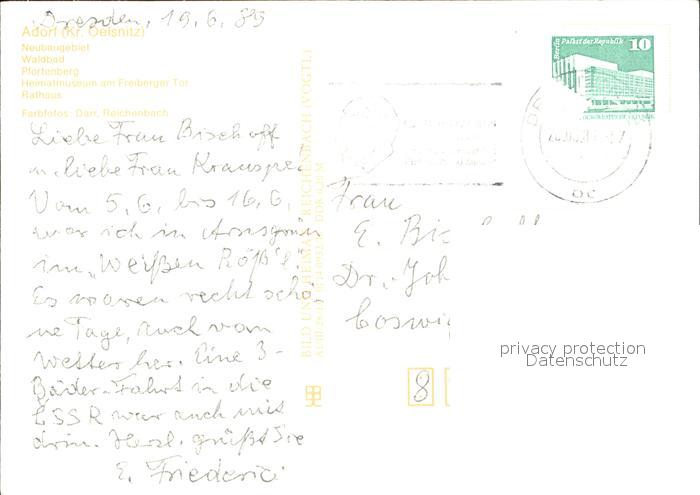 Dresden, 19.6.89
Adorf (Kr. Oelsnitz)
Neubaugebiet
Waldbad
Pfortenberg
Heimatmuseum am Freiberger Tor
Rathaus
Farbfotos: Darr, Reichenbach
Liebe Frau Bischoff
u. liebe Frau
Vom 5.6. bis 16.6.
war ich in Arnsgrün
im „Weißen Röß'l."
Es waren recht schö-
ne Tage, auch vom
Wetter her. Eine 3-
Bäder-Fahrt in die
ČSSR war auch mit
drin. Herzl. grüßt Sie
E. Friederici
BILD UND HEIMAT REICHENBACH (VOGTL)
Berlin Palast der Republik
10
Frau
E. Bis
Dr.-Joh
Coswi
8
privacy protection
Datenschutz